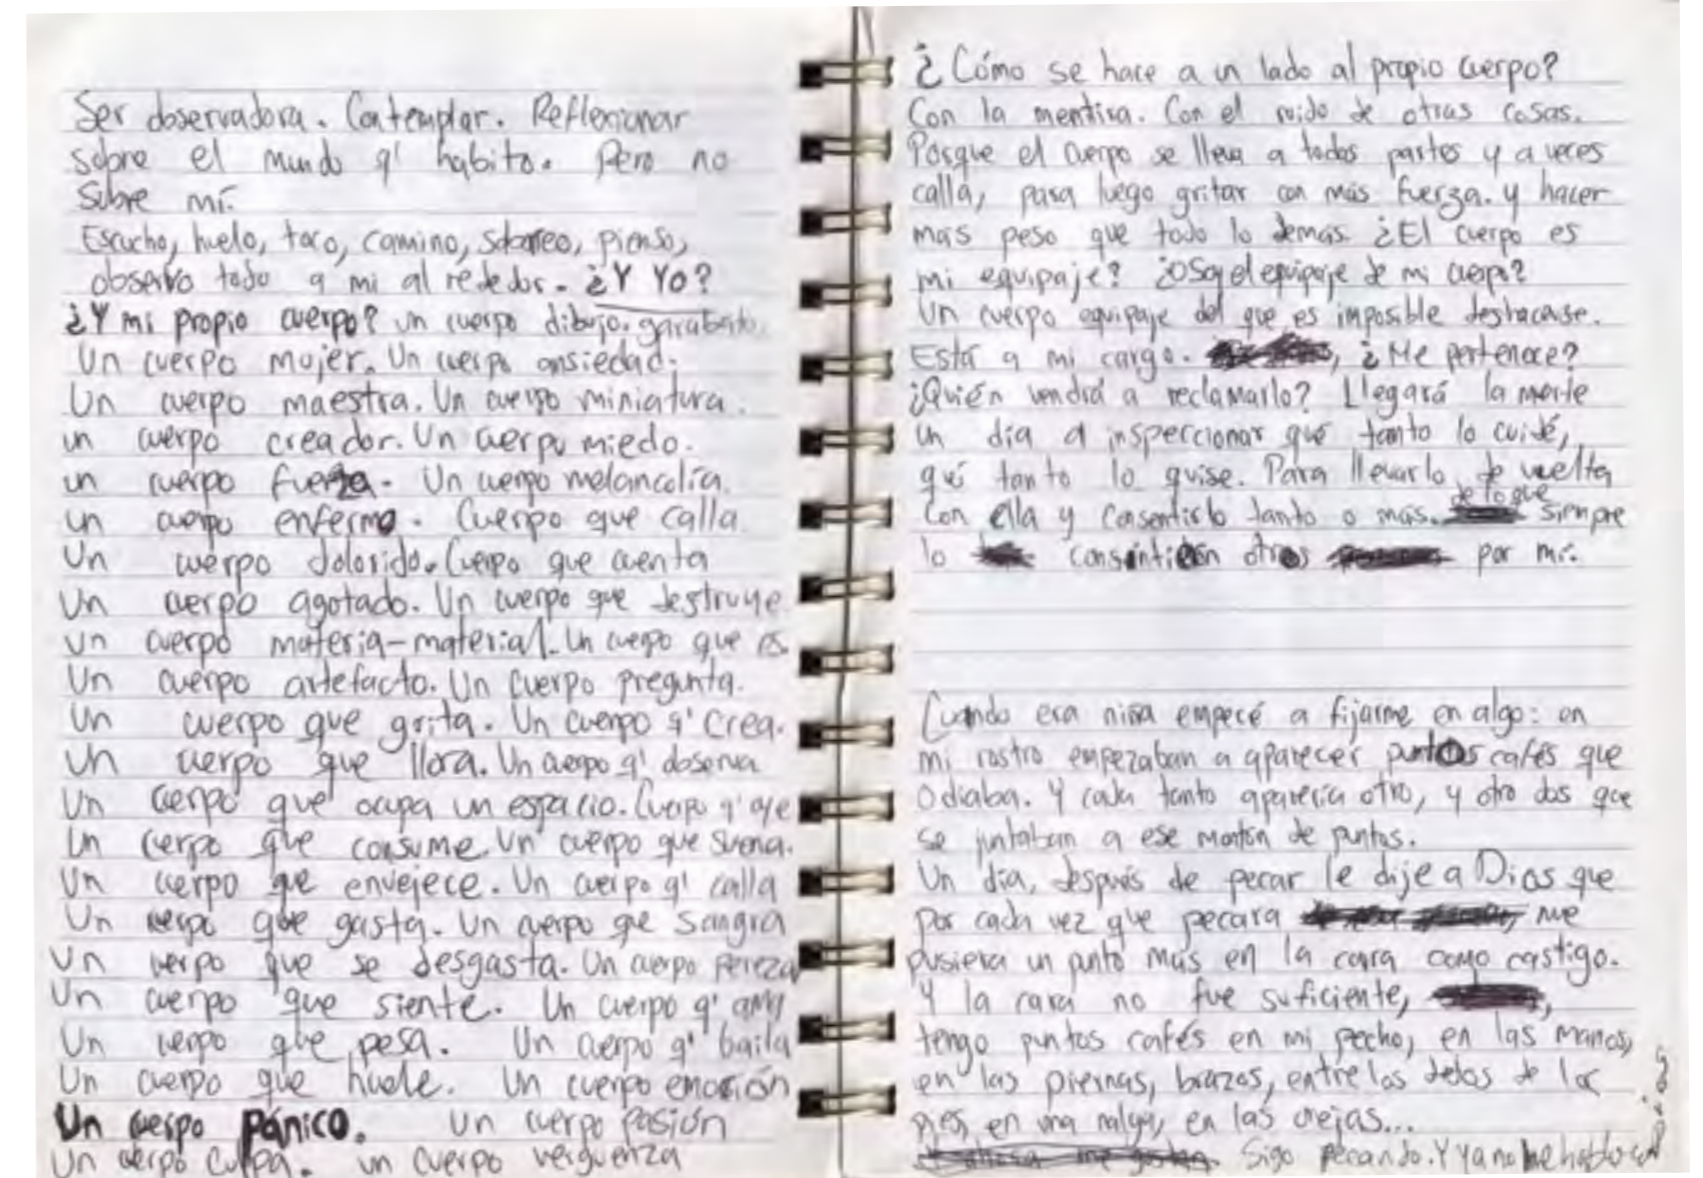 Ser observadora. Contemplar. Reflexionar
sobre el mundo q' habito. Pero no
sobre mí.
Escucho, huelo, toco, camino, saboreo, pienso,
observo todo a mi al rededor. ¿Y YO?
¿Y mi propio cuerpo? un cuerpo dibujo. garabato.
Un cuerpo mujer. Un cuerpo ansiedad.
Un cuerpo maestra. Un cuerpo miniatura.
un cuerpo creador. Un cuerpo miedo.
un cuerpo fuerza. Un cuerpo melancolía.
un cuerpo enfermo. Cuerpo que calla
Un cuerpo dolorido. Cuerpo que cuenta
Un cuerpo agotado. Un cuerpo que destruye
un cuerpo materia-material. Un cuerpo que es.
Un cuerpo artefacto. Un cuerpo pregunta.
Un cuerpo que grita. Un cuerpo q' crea.
Un cuerpo que llora. Un cuerpo q' observa
Un cuerpo que ocupa un espacio. Cuerpo q' oye
Un cuerpo que consume. Un cuerpo que suena.
Un cuerpo que envejece. Un cuerpo q' calla
Un cuerpo que gasta. Un cuerpo que sangra
Un cuerpo que se desgasta. Un cuerpo pereza
Un cuerpo que siente. Un cuerpo q' ama
Un cuerpo que pesa. Un cuerpo q' baila
Un cuerpo que huele. Un cuerpo emoción
Un cuerpo pánico. Un cuerpo pasión
Un cuerpo culpa. un cuerpo verguenza
¿Cómo se hace a un lado al propio cuerpo?
Con la mentira. Con el ruido de otras cosas.
Porque el cuerpo se lleva a todas partes y a veces
calla, para luego gritar con más fuerza. y hacer
mas peso que todo lo demás. ¿El cuerpo es
mi equipaje? ¿O Soy el equipaje de mi cuerpo?
Un cuerpo equipaje del que es imposible deshacerse.
Está a mi cargo. ¿Me pertenece?
¿Quién vendrá a reclamarlo? Llegará la muerte
un día a inspeccionar qué tanto lo cuidé,
qué tanto lo quise. Para llevarlo de vuelta
con ella y consentirlo tanto o más. de lo que siempre
lo consintieron otros por mí.
Cuando era niña empecé a fijarme en algo: en
mi rostro empezaban a aparecer puntos cafés que
odiaba. Y cada tanto aparecía otro, y otro dos que
se juntaban a ese montón de puntos.
Un día, después de pecar le dije a Dios que
por cada vez que pecara me
pusiera un punto más en la cara como castigo.
Y la cara no fue suficiente,
tengo puntos cafés en mi pecho, en las manos,
en las piernas, brazos, entre los dedos de los
pies, en una nalga, en las orejas...
Sigo pecando. Y ya no le hablo con